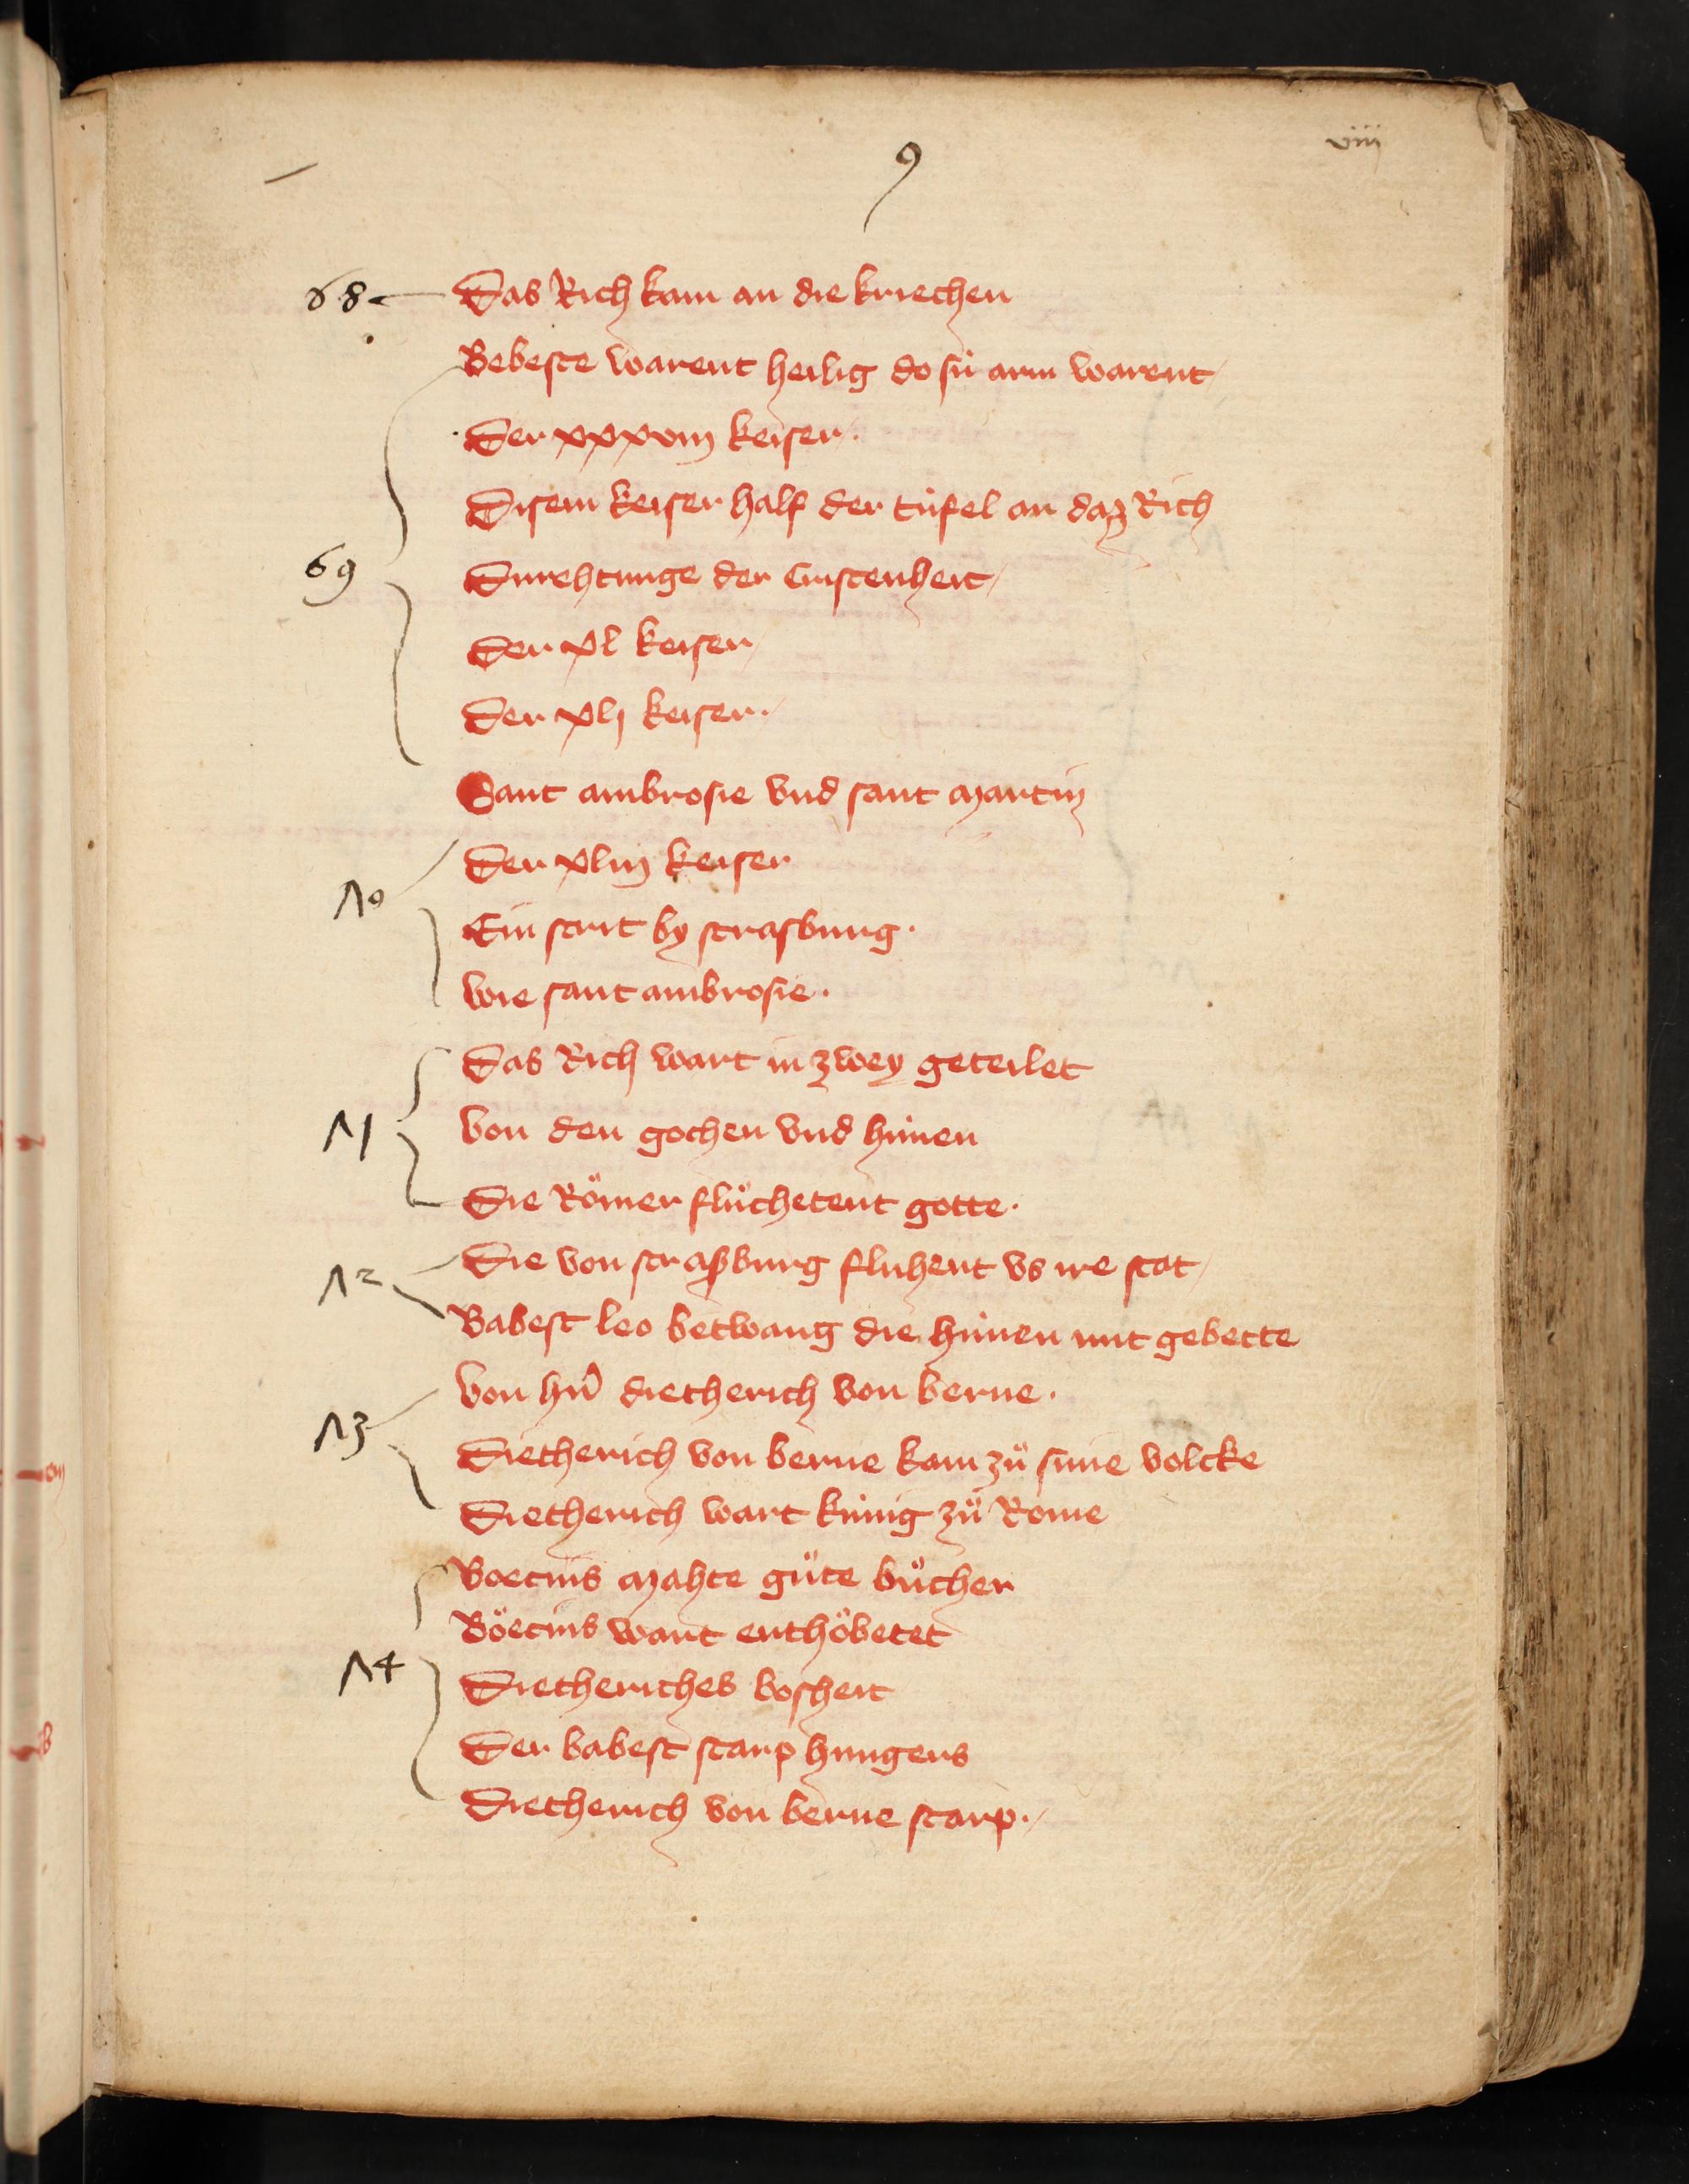 9
viij
68 Das Rich kam an die kriechen
Bebeste warent heilig do sü arm warent
Der xxxviij keiser.
Disem keiser half der tüfel an daz Rich
69 Durehtunge der Cristenheit
Der xl keiser
Der xlj keiser.
Sant ambrosie vnd sant martin
Der xliij keiser
70 Ein strit by strasburg.
wie sant ambrosie.
Das Rich wart in zwey geteilet
71 von den gothen vnd hünen
Die Römer flüchetent gotte.
72 Die von straßburg fluhent vs ire stat
Babest leo betwang die hünen mit gebette
von hern dietherich von berne.
73 Dietherich von berne kam zů sime volcke
Dietherich wart künig zů Rome
Boecius mahte gůte bůcher
Böecius wart enthöbetet
74 Dietheriches bosheit
Der babest starp hungers
Dietherich von berne starp.